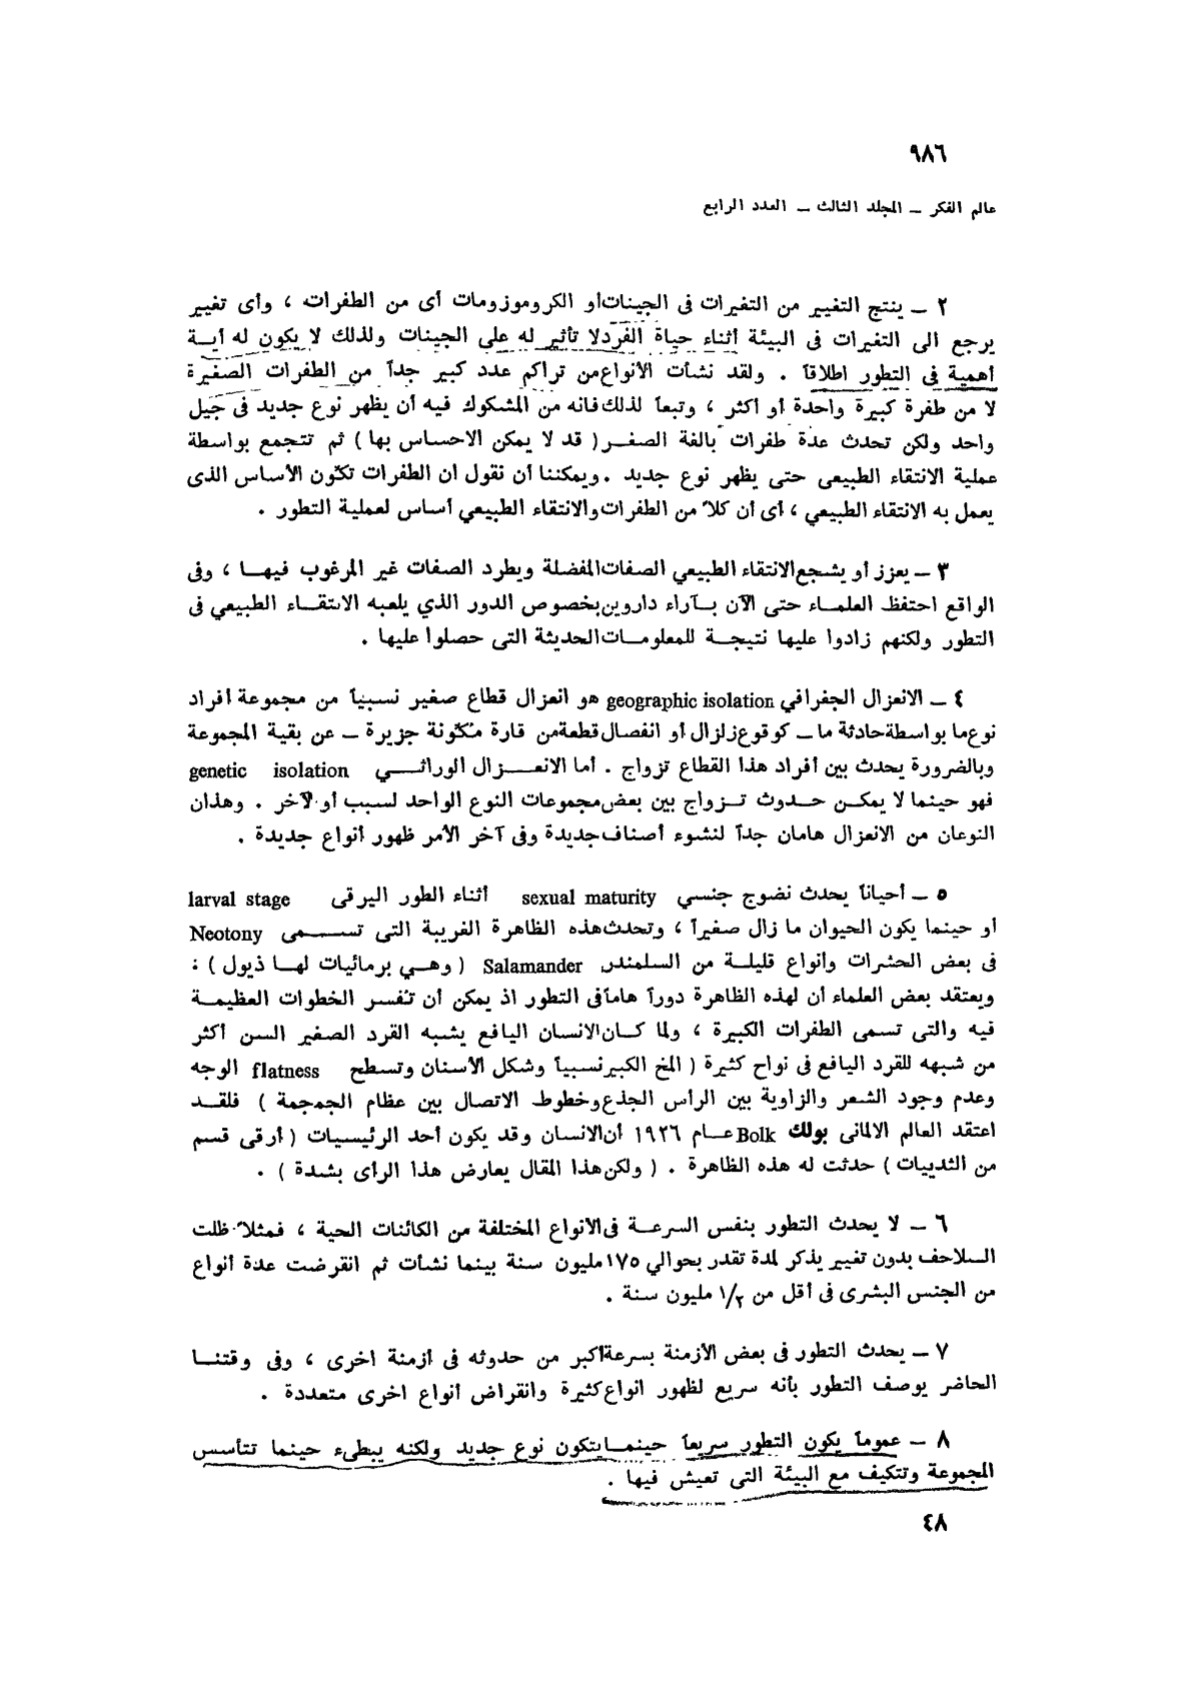 ٩٨٦
عالم الفكر ــ المجلد الثالث ــ العدد الرابع
٢ ــ ينتج التغيير من التغيرات فى الجينات أو الكروموزومات أى من الطفرات ، وأى تغيير
يرجع الى التغيرات فى البيئة أثناء حياة الفرد لا تأثير له على الجينات ولذلك لا يكون له أيـــة
أهمية فى التطور اطلاقاً . ولقد نشأت الأنواع من تراكم عدد كبير جداً من الطفرات الصغيرة
لا من طفرة كبيرة واحدة أو أكثر ، وتبعاً لذلك فانه من المشكوك فيه أن يظهر نوع جديد فى جيل
واحد ولكن تحدث عدة طفرات بالغة الصغـر ( قد لا يمكن الاحساس بها ) ثم تتجمع بواسطة
عملية الانتقاء الطبيعى حتى يظهر نوع جديد . ويمكننا أن نقول ان الطفرات تكوّن الأساس الذى
يعمل به الانتقاء الطبيعي ، أى أن كلاً من الطفرات والانتقاء الطبيعي أساس لعملية التطور .
٣ ــ يعزز أو يشجع الانتقاء الطبيعي الصفات المفضلة ويطرد الصفات غير المرغوب فيهــا ، وفى
الواقع احتفظ العلمـاء حتى الآن بــآراء داروين بخصوص الدور الذي يلعبه الانتقـاء الطبيعي فى
التطور ولكنهم زادوا عليها نتيجــة للمعلومــات الحديثة التى حصلوا عليها .
٤ ــ الانعزال الجغرافي geographic isolation هو انعزال قطاع صغير نسبياً من مجموعة أفراد
نوع ما بواسطة حادثة ما ــ كوقوع زلزال أو انفصال قطعة من قارة مكوّنة جزيرة ــ عن بقية المجموعة
وبالضرورة يحدث بين أفراد هذا القطاع تزواج . أما الانعــزال الوراثــي genetic isolation
فهو حينما لا يمكــن حــدوث تــزواج بين بعض مجموعات النوع الواحد لسبب أو لآخر . وهذان
النوعان من الانعزال هامان جداً لنشوء أصناف جديدة وفى آخر الأمر ظهور أنواع جديدة .
٥ ــ أحياناً يحدث نضوج جنسي sexual maturity أثناء الطور اليرقى larval stage
أو حينما يكون الحيوان ما زال صغيراً ، وتحدث هذه الظاهرة الغريبة التى تســـمى Neotony
فى بعض الحشرات وأنواع قليلــة من السلمندر Salamander ( وهــي برمائيات لهــا ذيول ) :
ويعتقد بعض العلماء أن لهذه الظاهرة دوراً هاماً فى التطور اذ يمكن أن تفسر الخطوات العظيمــة
فيه والتى تسمى الطفرات الكبيرة ، ولما كــان الانسان اليافع يشبه القرد الصغير السن أكثر
من شبهه للقرد اليافع فى نواح كثيرة ( المخ الكبير نسبياً وشكل الأسنان وتسطح flatness الوجه
وعدم وجود الشعر والزاوية بين الرأس الجذع وخطوط الاتصال بين عظام الجمجمة ) فلقــد
اعتقد العالم الألمانى بولك Bolk عــام ١٩٢٦ أن الانسان وقد يكون أحد الرئيسيات ( أرقى قسم
من الثدييات ) حدثت له هذه الظاهرة . ( ولكن هذا المقال يعارض هذا الرأى بشدة ) .
٦ ــ لا يحدث التطور بنفس السرعــة فى الأنواع المختلفة من الكائنات الحية ، فمثلاً ظلت
السلاحف بدون تغيير يذكر لمدة تقدر بحوالي ١٧٥ مليون سنة بينما نشأت ثم انقرضت عدة أنواع
من الجنس البشرى فى أقل من ١/٢ مليون سنة .
٧ ــ يحدث التطور فى بعض الأزمنة بسرعة أكبر من حدوثه فى أزمنة اخرى ، وفى وقتنــا
الحاضر يوصف التطور بأنه سريع لظهور انواع كثيرة وانقراض أنواع اخرى متعددة .
٨ ــ عموماً يكون التطور سريعاً حينمــا يتكون نوع جديد ولكنه يبطىء حينما تتأسس
المجموعة وتتكيف مع البيئة التى تعيش فيها .
٤٨